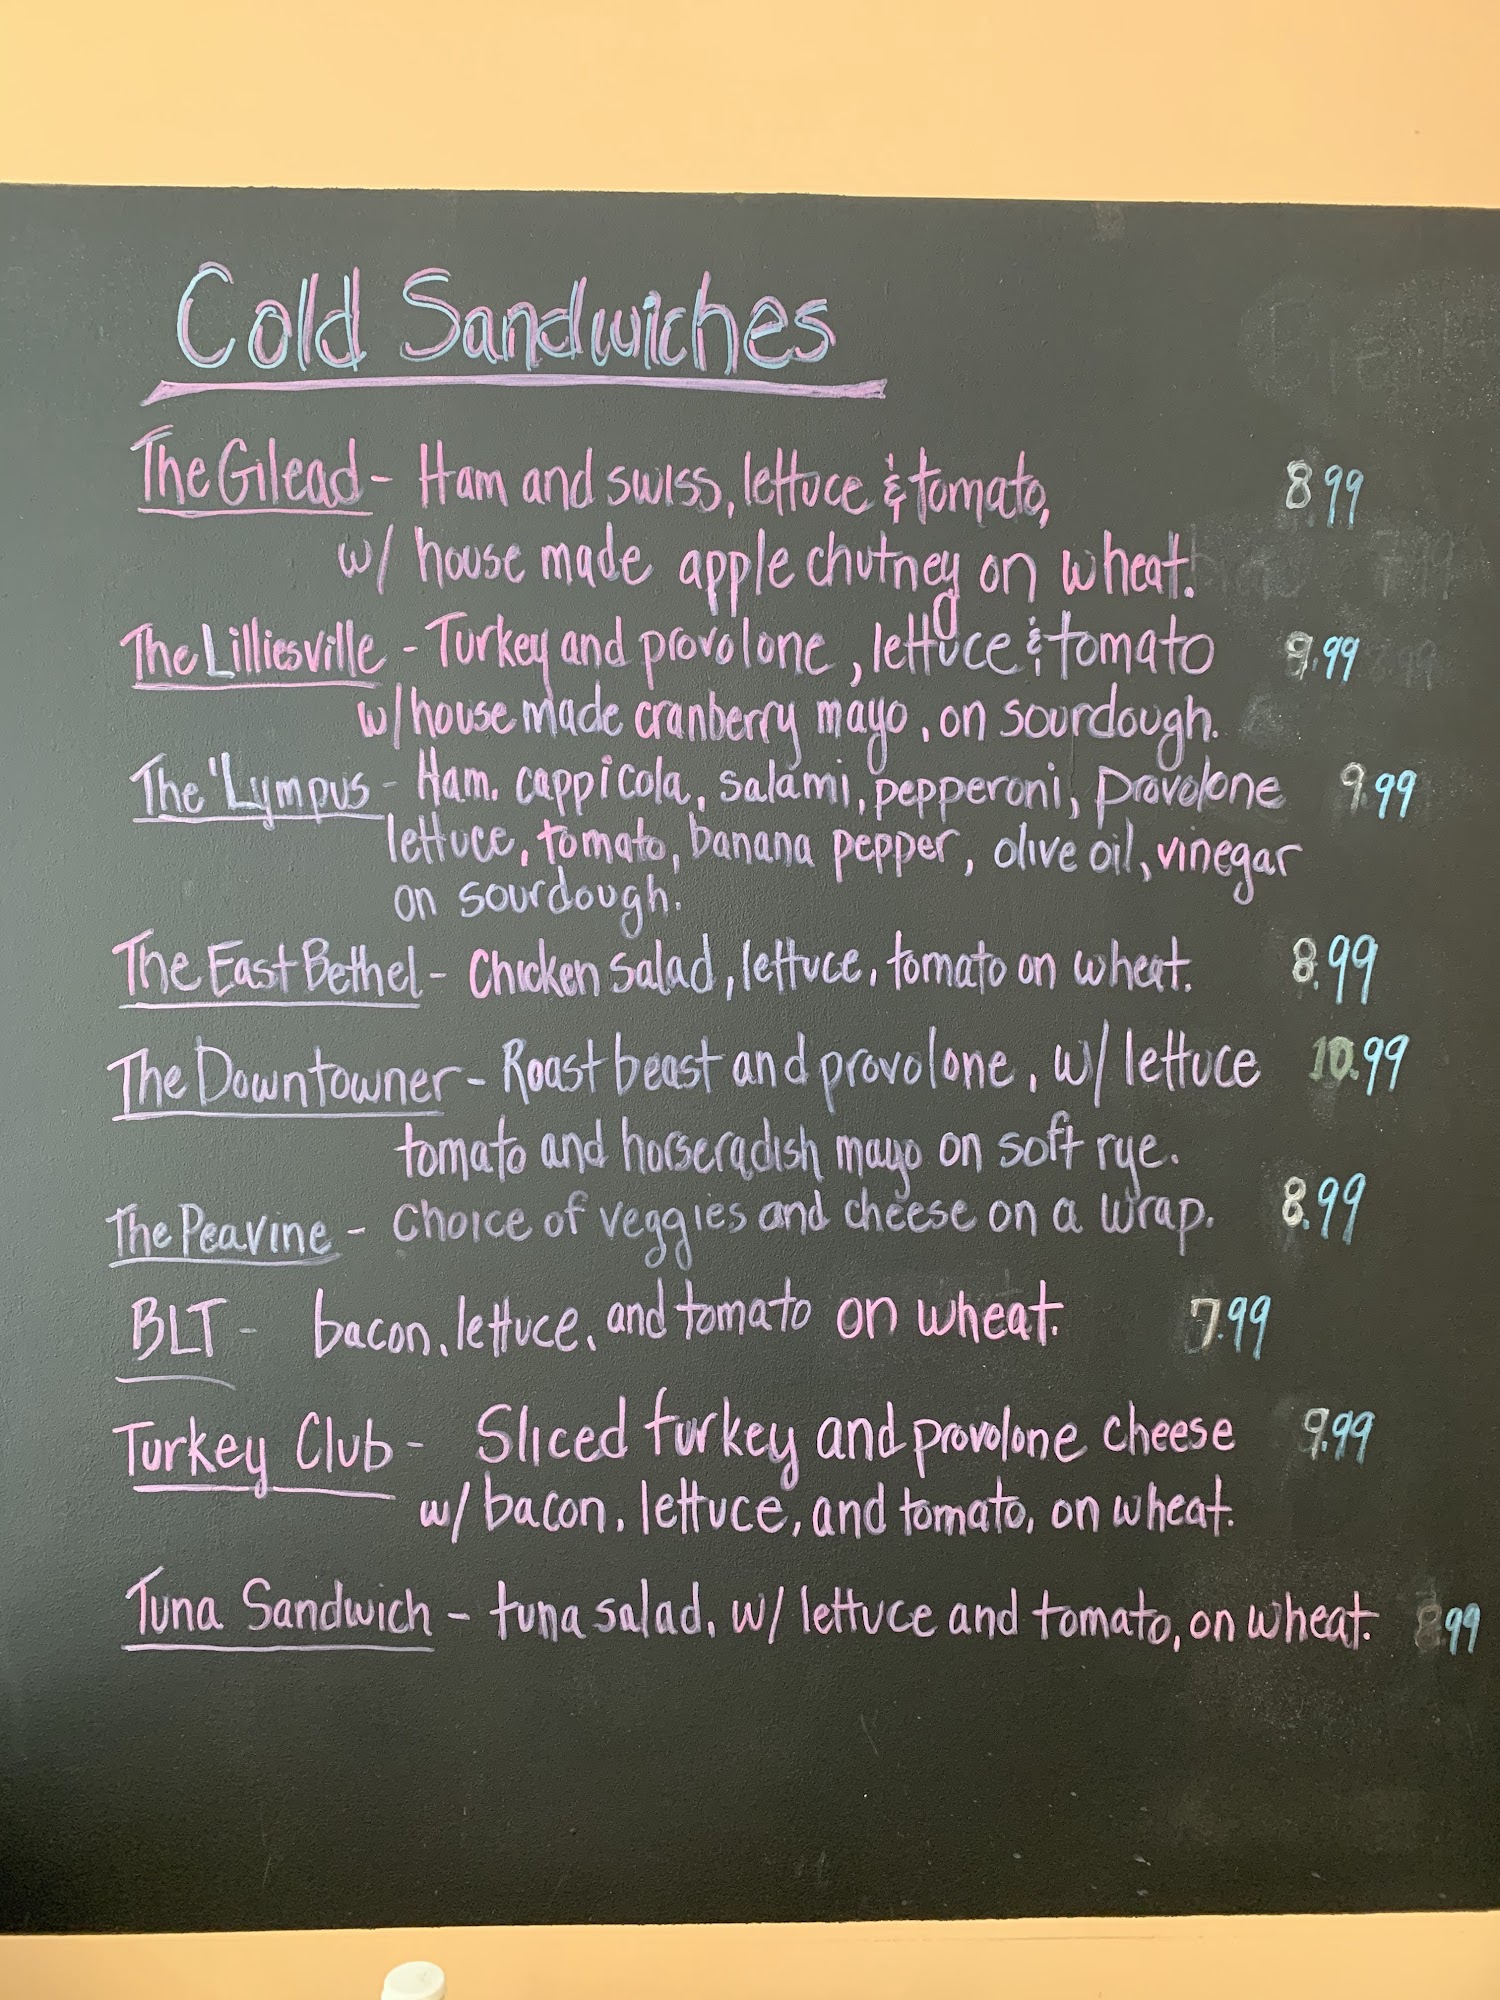 Cold Sandwiches
The Gilead - Ham and swiss, lettuce & tomato, 8.99
w/ house made apple chutney on wheat.
The Lilliesville - Turkey and provolone, lettuce & tomato 9.99
w/ house made cranberry mayo, on sourdough.
The 'Lympus - Ham. cappicola, salami, pepperoni, provolone 9.99
lettuce, tomato, banana pepper, olive oil, vinegar
on sourdough.
The East Bethel - Chicken salad, lettuce, tomato on wheat. 8.99
The Downtowner - Roast beast and provolone, w/ lettuce 10.99
tomato and horseradish mayo on soft rye.
The Peavine - Choice of veggies and cheese on a wrap. 8.99
BLT - bacon, lettuce, and tomato on wheat. 7.99
Turkey Club - Sliced turkey and provolone cheese 9.99
w/ bacon, lettuce, and tomato, on wheat.
Tuna Sandwich - tuna salad, w/ lettuce and tomato, on wheat. 8.99